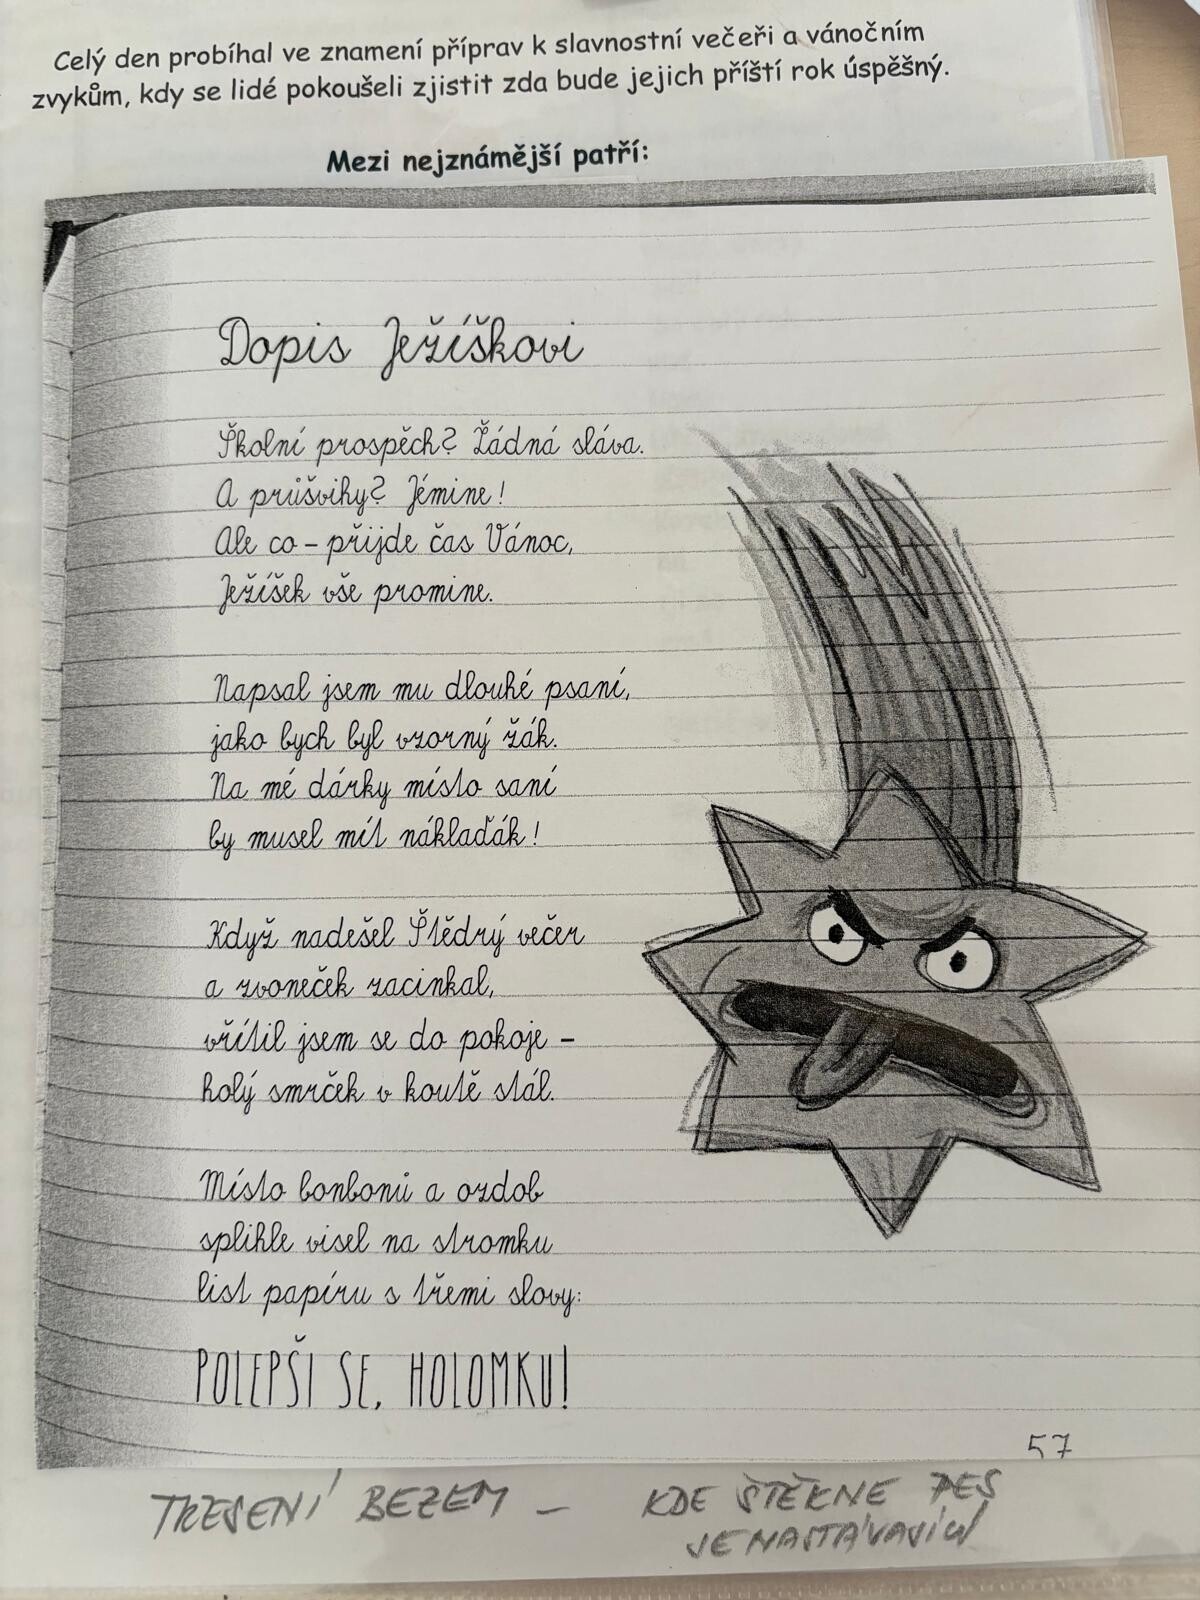 Celý den probíhal ve znamení příprav k slavnostní večeři a vánočním
zvykům, kdy se lidé pokoušeli zjistit zda bude jejich příští rok úspěšný.
Mezi nejznámější patří:
Dopis Ježíškovi
Školní prospěch? Žádná sláva.
A průšvihy? Jémine!
Ale co – přijde čas Vánoc,
Ježíšek vše promine.
Napsal jsem mu dlouhé psaní,
jako bych byl vzorný žák.
Na mé dárky místo saní
by musel mít náklaďák!
Když nadešel Štědrý večer
a zvoneček zacinkal,
vřítil jsem se do pokoje –
holý smrček v koutě stál.
Místo bonbonů a ozdob
splihle visel na stromku
list papíru s třemi slovy:
POLEPŠI SE, HOLOMKU!
57
TŘESENÍ BEZEM – KDE ŠTĚKNE PES
JE NASTÁVAJÍCÍ